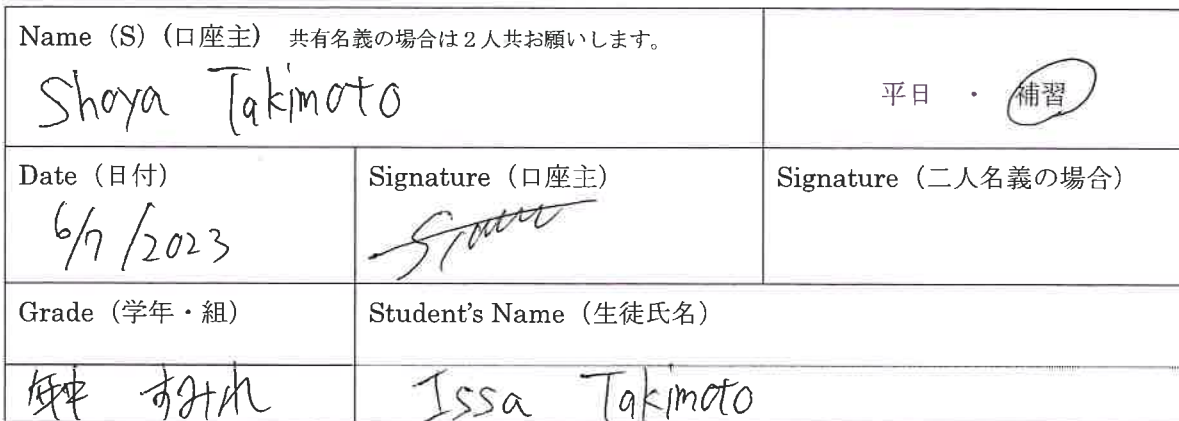 Name (S) (口座主) 共有名義の場合は2人共お願いします。
Shoya Takimoto
平日 ・ 補習
Date (日付)
6/7/2023
Signature (口座主)
Signature (二人名義の場合)
Grade (学年・組)
年中 すみれ
Student's Name (生徒氏名)
Issa Takimoto